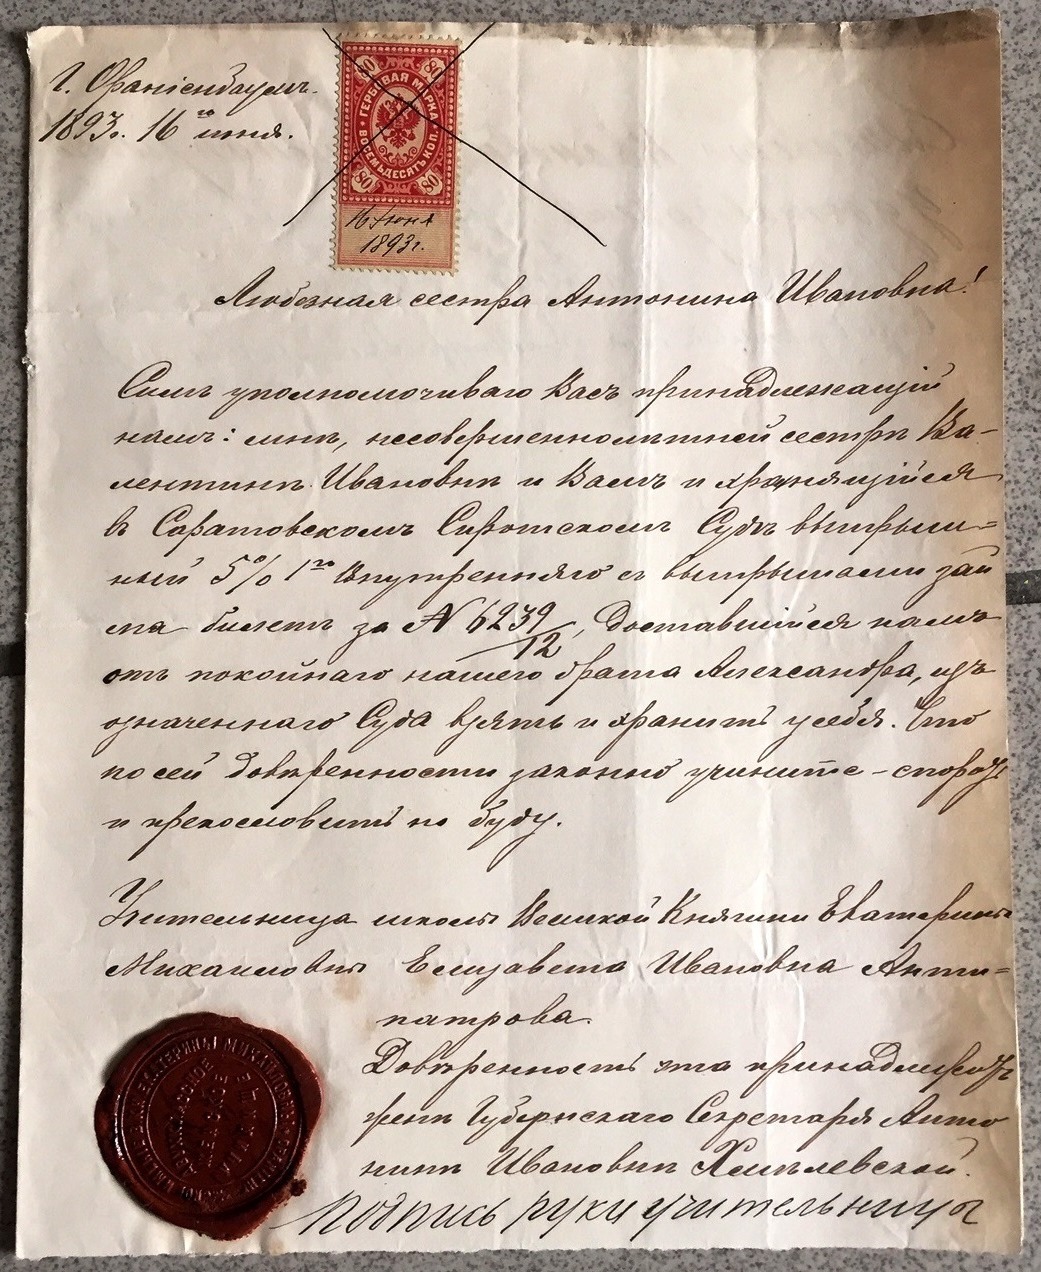 г. Ораніенбаумъ.
1893г. 16го іюня.
80 80
ГЕРБОВАЯ МАРКА
ВОСЕМЬДЕСЯТЪ КОП.
80 80
16 Іюня
1893г.
Любезная сестра Антонина Ивановна!
Симъ уполномочиваю Васъ принадлежащій
намъ: мнѣ, несовершеннолѣтней сестрѣ Ва-
лентинѣ Ивановнѣ и Вамъ и хранящійся
въ Саратовскомъ Сиротскомъ Судѣ выигрыш-
ный 5% 1го внутренняго съ выигрышами зай
ма билетъ за № 6239/12, доставшійся намъ
отъ покойнаго нашего брата Александра, изъ
означеннаго Суда взять и хранить у себя. Что
по сей довѣренности законно учините - спорить
и прекословить не буду.
Учительница школы Великой Княгини Екатерины
Михаиловны Елизавета Ивановна Анти-
патрова.
Довѣренность эта принадлежитъ
женѣ Губернскаго Секретаря Анто
нинѣ Ивановнѣ Хмѣлевской.
Подпись руки учительницы
ЕКАТЕРИНЫ МИХАИЛОВНЫ